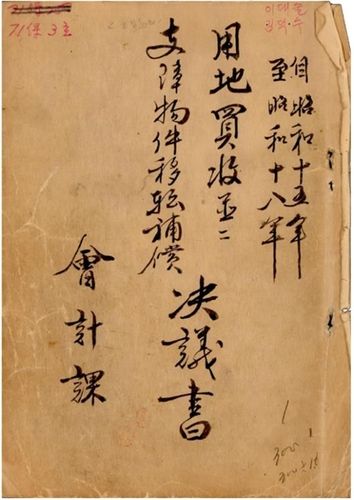 自昭和十五年
至昭和十八年
用地買收並ニ
支障物件移転補償
决議書
會計課
71保 3호